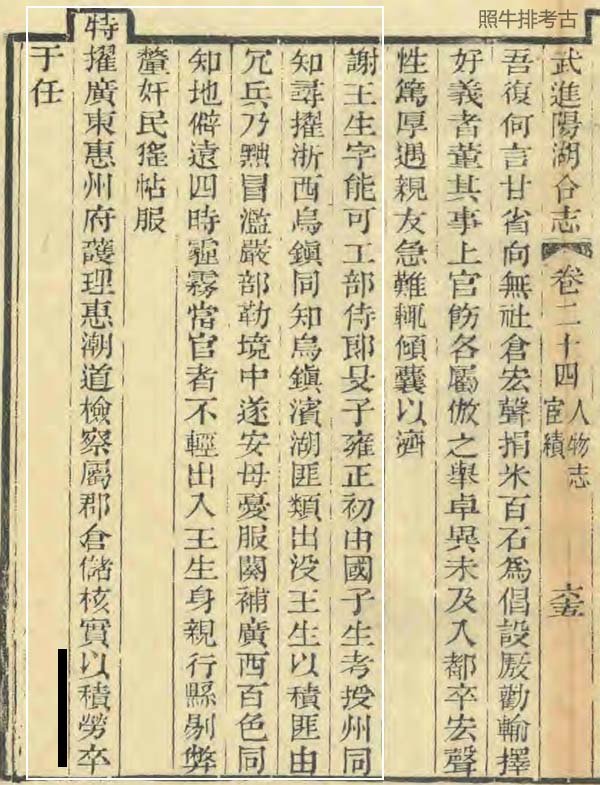 照牛排考古
武進陽湖合志 卷二十四 人物志 宦績
吾復何言甘省向無社倉宏聲捐米百石為倡設厫勸輸擇
好義者董其事上官飭各屬倣之舉卓異未及入都卒宏聲
性篤厚遇親友急難輒傾囊以濟
謝王生字能可工部侍郎旻子雍正初由國子生考授州同
知尋擢浙西烏鎮同知烏鎮濱湖匪類出没王生以積匪由
冗兵乃黜冒濫嚴部勒境中遂安母憂服闋補廣西百色同
知地僻遠四時霾霧當官者不輕出入王生身親行縣剔弊
釐奸民猺帖服
特擢廣東惠州府護理惠潮道檢察屬郡倉儲核實以積勞卒
于任